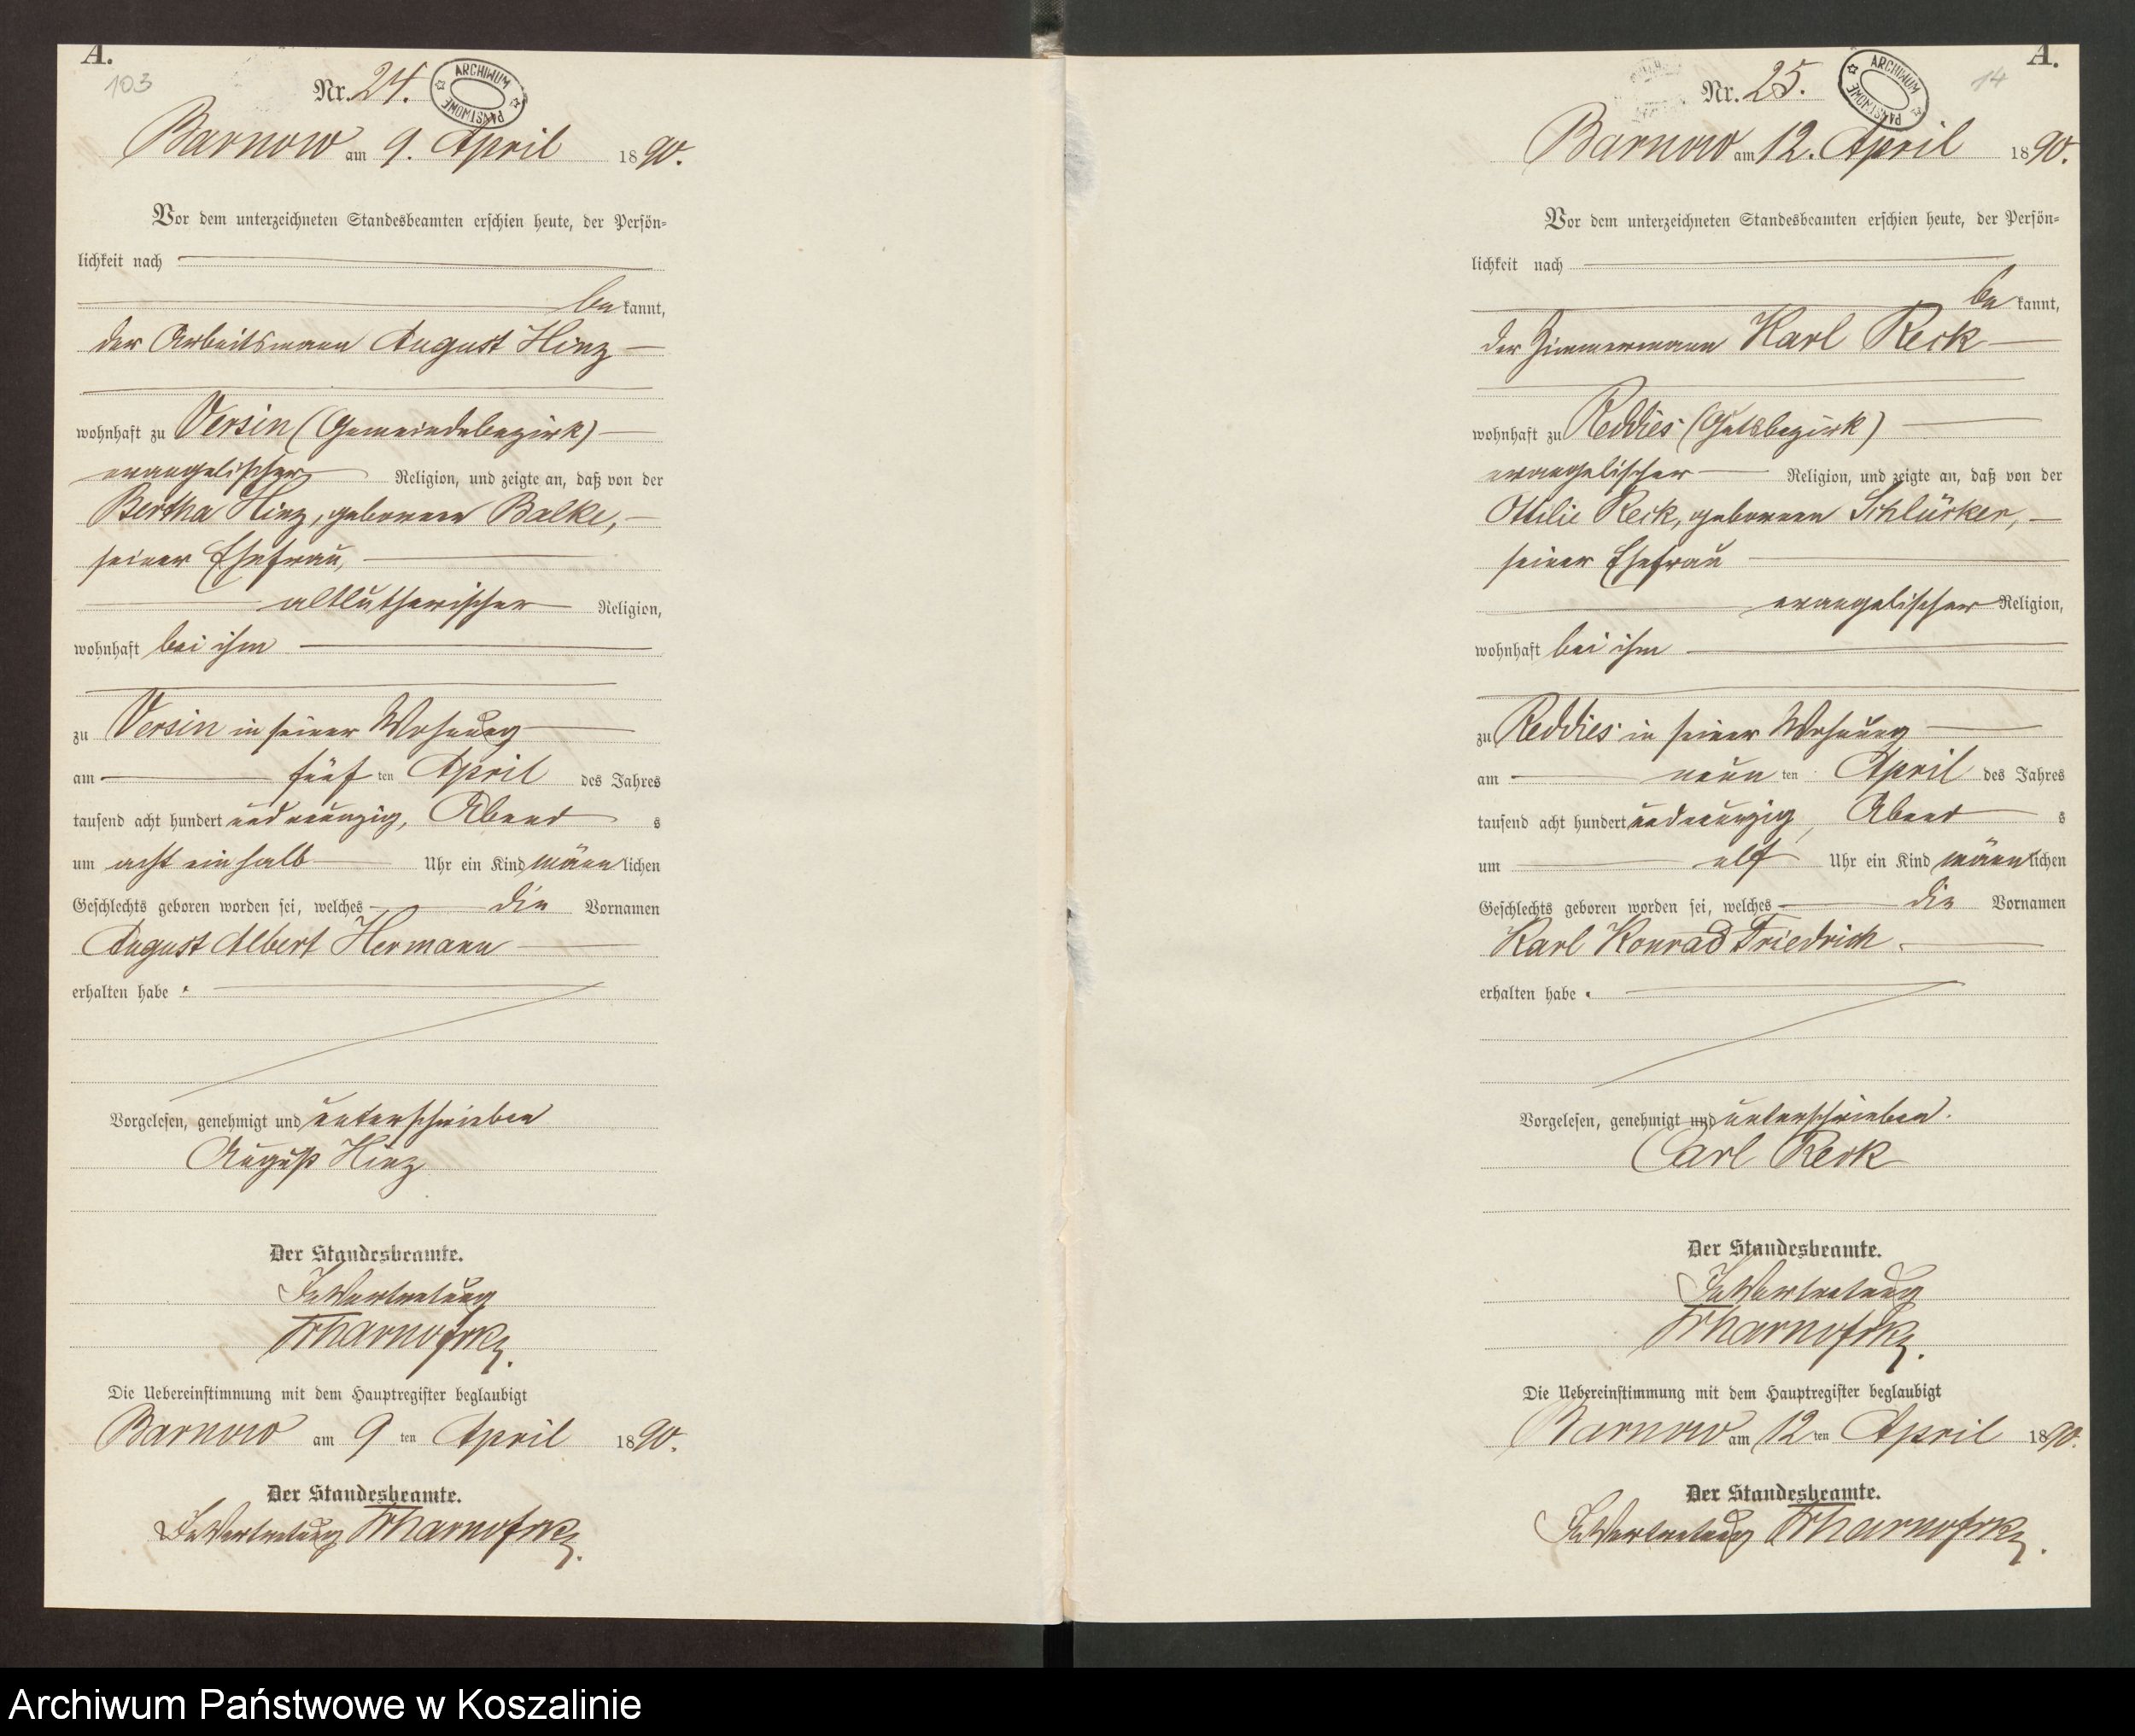 A.
103
Nr. 24.
ARCHIWUM PAŃSTWOWE
Barnow am 9. April 1890.
Vor dem unterzeichneten Standesbeamten erschien heute, der Persön-
lichkeit nach
be kannt,
der Arbeitsmann August Hinz
wohnhaft zu Versin (Gemeindebezirk)
evangelischer Religion, und zeigte an, daß von der
Bertha Hinz, geborenen Balke,
seiner Ehefrau,
altlutherischer Religion,
wohnhaft bei ihm
zu Versin in seiner Wohnung
am fünf ten April des Jahres
tausend acht hundert und neunzig, Abend s
um acht ein halb Uhr ein Kind männ lichen
Geschlechts geboren worden sei, welches die Vornamen
August Albert Hermann
erhalten habe.
Vorgelesen, genehmigt und unterschrieben
August Hinz
Der Standesbeamte.
In Vertretung
Die Uebereinstimmung mit dem Hauptregister beglaubigt
Barnow am 9 ten April 1890.
Der Standesbeamte.
In Vertretung
A.
14
Nr. 25.
ARCHIWUM PAŃSTWOWE
Barnow am 12. April 1890.
Vor dem unterzeichneten Standesbeamten erschien heute, der Persön-
lichkeit nach
be kannt,
der Zimmermann Karl Reck
wohnhaft zu Reddies (Gutsbezirk)
evangelischer Religion, und zeigte an, daß von der
Ottilie Reck, geborenen Schlüsker,
seiner Ehefrau
evangelischer Religion,
wohnhaft bei ihm
zu Reddies in seiner Wohnung
am neun ten April des Jahres
tausend acht hundert und neunzig, Abend s
um elf Uhr ein Kind männ lichen
Geschlechts geboren worden sei, welches die Vornamen
Karl Konrad Friedrich
erhalten habe.
Vorgelesen, genehmigt und unterschrieben.
Carl Reck
Der Standesbeamte.
In Vertretung
Die Uebereinstimmung mit dem Hauptregister beglaubigt
Barnow am 12 ten April 1890.
Der Standesbeamte.
In Vertretung
Archiwum Państwowe w Koszalinie